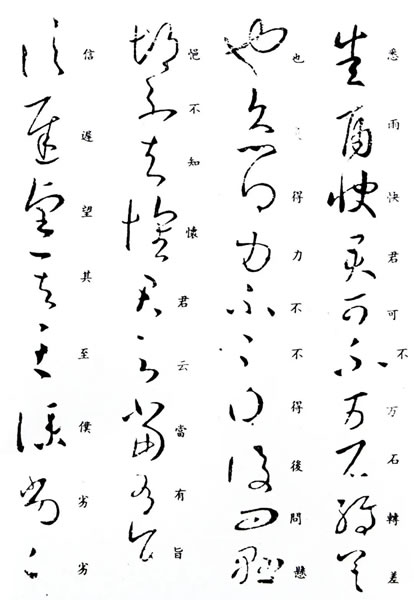 悉雨快君可不万石轉差
也得力不不得後問懸
悒不知懷君云當有旨
信遲望其至僕劣劣